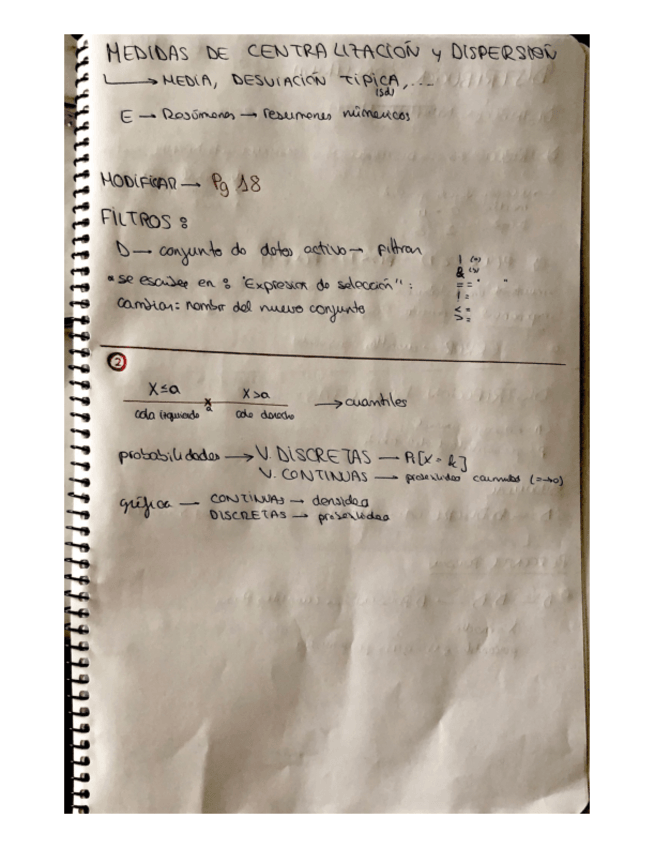 MEDIDAS DE CENTRALIZACIÓN y DISPERSIÓN
↳ MEDIA, DESVIACIÓN TÍPICA, ...
(sd)
E → Resúmenes → resumenes númericos
MODIFICAR → Pg 18
FILTROS:
D → conjunto de datos activo → filtrar
se escribe en: "Expresion de selección":
cambiar: nombre del nuevo conjunto
| (o)
& (y)
== " "
!=
<=
>=
2
X≤a X>a → cuantiles
a
cola izquierda cola derecha
probabilidades → V. DISCRETAS → P[X = k]
V. CONTINUAS →
gráfica → CONTINUAS → densidad
DISCRETAS → probabilidad